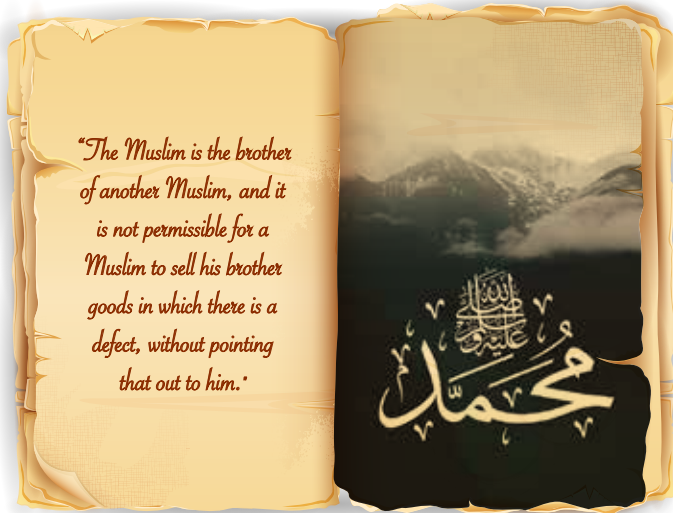 “The Muslim is the brother
of another Muslim, and it
is not permissible for a
Muslim to sell his brother
goods in which there is a
defect, without pointing
that out to him.”
صلى الله عليه وسلم
محمد